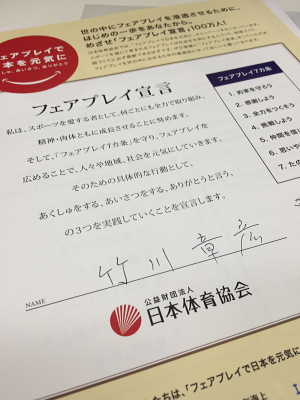 フェアプレイで
日本を元気に
あくしゅ、あいさつ、ありがとう
世の中にフェアプレイを浸透させるために、
はじめの一歩をあなたから。
めざせ!「フェアプレイ宣言」100万人!
フェアプレイ宣言
私は、スポーツを愛する者として、何ごとにも全力で取り組み、
精神・肉体ともに成長させることに努めます。
そして、「フェアプレイ7カ条」を守り、フェアプレイを
広めることで、人々や地域、社会を元気にしていきます。
そのための具体的な行動として、
あくしゅをする、あいさつをする、ありがとうと言う、
の3つを実践していくことを宣言します。
竹川 章彦
NAME
公益財団法人
日本体育協会
フェアプレイ7カ条
1. 約束を守ろう
2. 感謝しよう
3. 全力をつくそう
4. 挑戦しよう
5. 仲間を信
6. 思いや
7. たの
たちは、「フェアプレイで日本を元気に